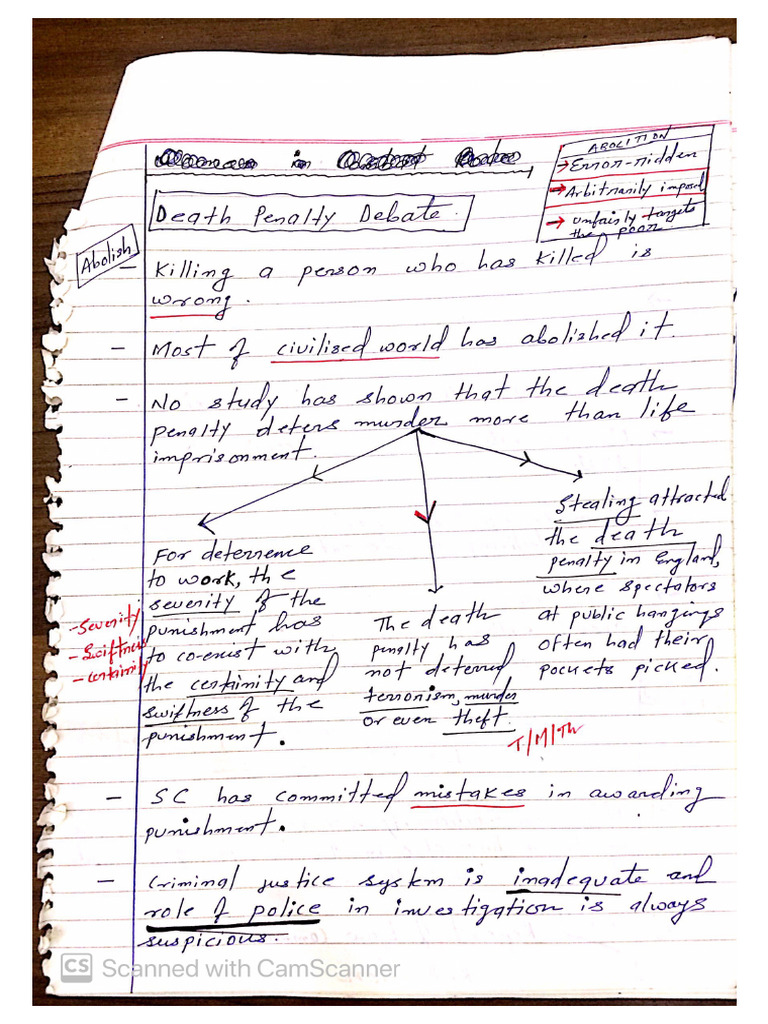 in
ABOLITION
→ Error-ridden
→ Arbitrarily imposed
→ unfairly targets
the poor
Death Penalty Debate.
Abolish
- Killing a person who has killed is
wrong.
- Most of civilised world has abolished it.
- No study has shown that the death
penalty deters murder more than life
imprisonment.
For deterrence
to work, the
severity of the
punishment has
to co-exist with
the certainity and
swiftness of the
punishment.
- Severity
- Swiftness
- certainity
The death
penalty has
not deterred
terrorism, murder
or even theft.
T/M/Th
Stealing attracted
the death
penalty in England,
where spectators
at public hangings
often had their
pockets picked.
- SC has committed mistakes in awarding
punishment.
- Criminal justice system is inadequate and
role of police in investigation is always
suspicious.
CS Scanned with CamScanner